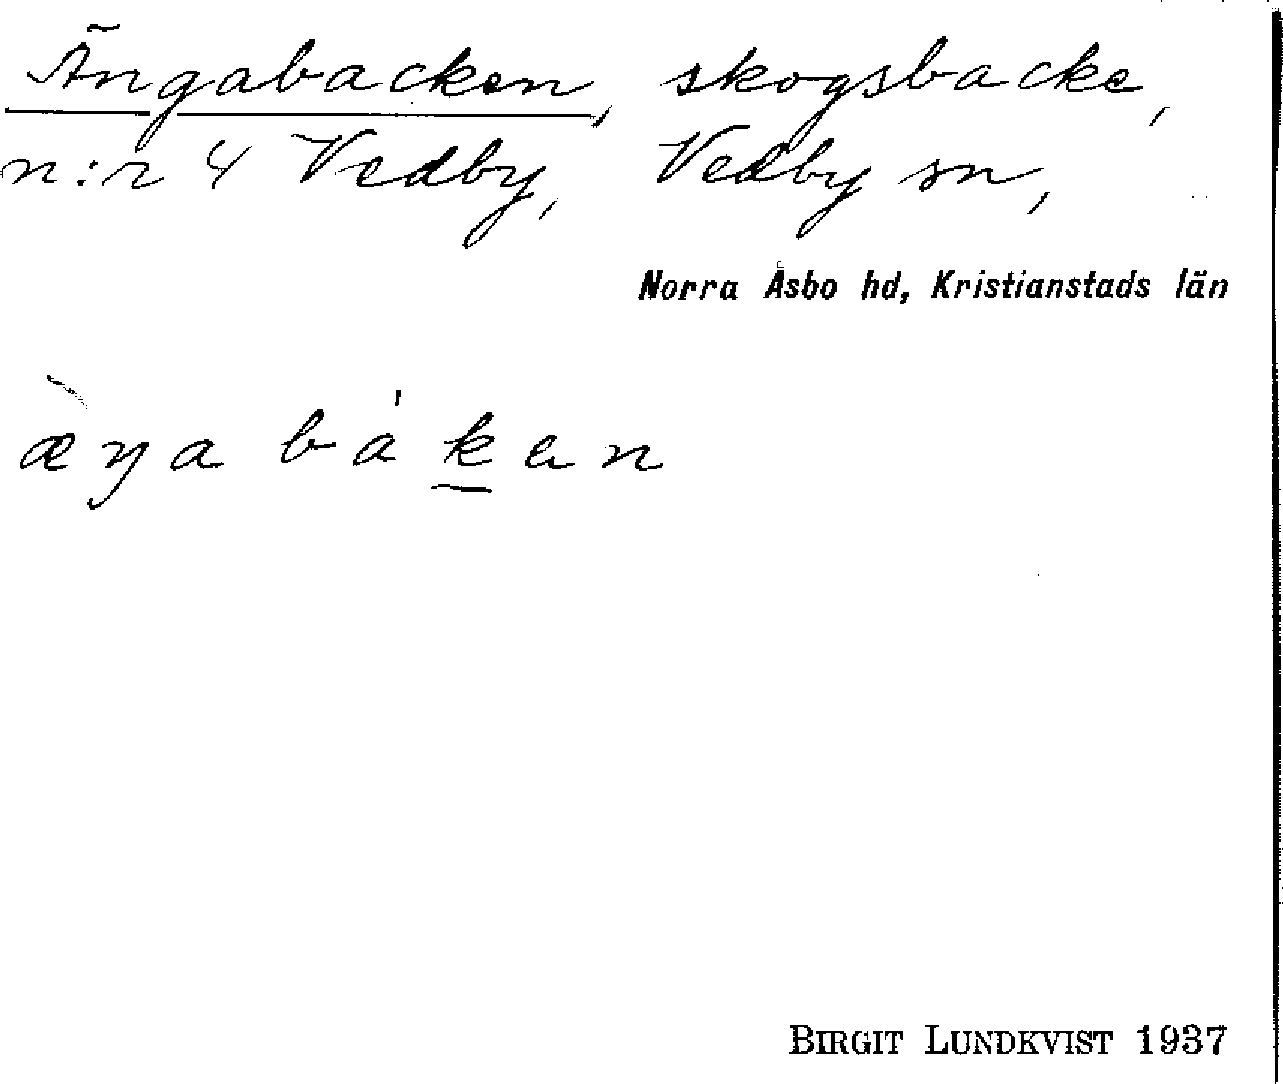 Ängabacken, skogsbacke,
n:r 4 Vedby, Vedby sn,
Norra Åsbo hd, Kristianstads län
æ̀ŋa bá'k̲en
BIRGIT LUNDKVIST 1937